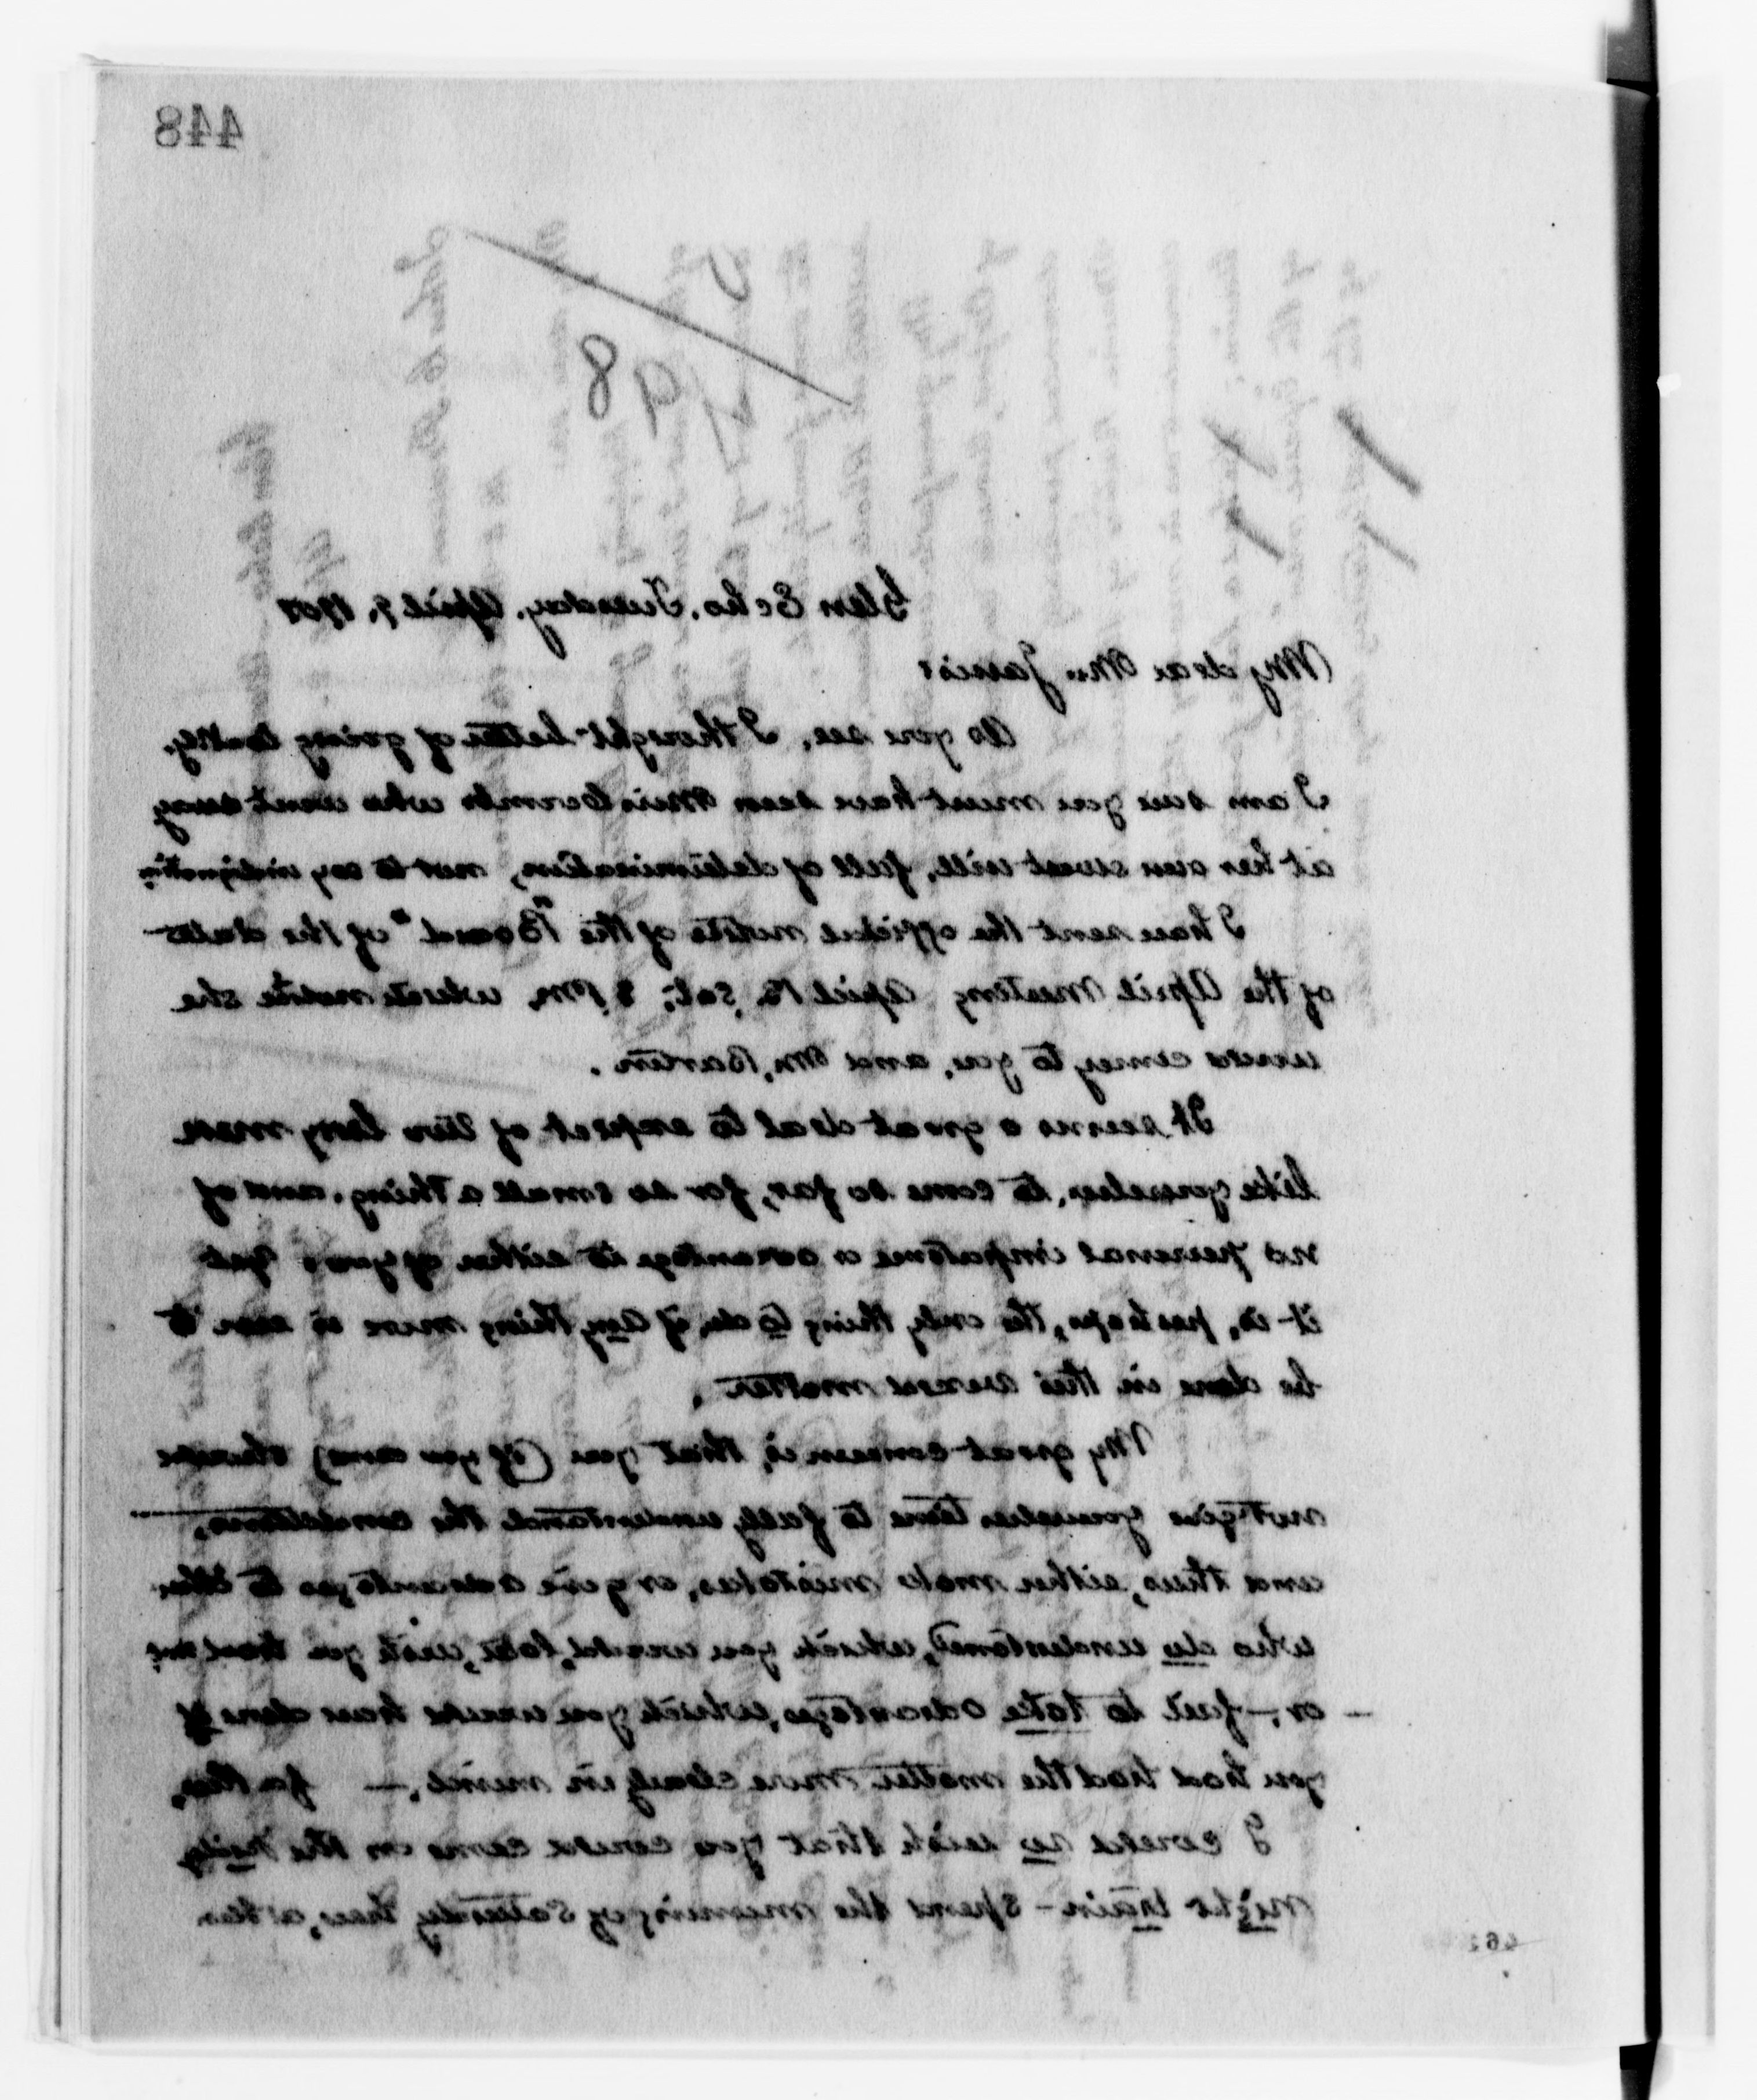 448
498
Glen Echo. Tuesday. April 9, 1901
My dear Mrs. Jarvis:
As you see, I thought better of going to-day.
I am sure you must have seen Miss who went away
at her own sweet will, full of determination, not to say indignation
I have sent the official notice of the "Board" of the date
of the April meeting April 13, Sat; 8 P.M. which notice she
would convey to you, and Mr. Barton.
It seems a great deal to expect of two busy men
like yourselves, to come so far, for so small a thing, and of
no personal importance or advantage to either of you, yet
it is, perhaps, the only thing to do, if any thing more is ever to
be done in this matter.
My great concern is, that you (if you come) should
not give yourselves time to fully understand the conditions,
and thus, either make mistakes, or give advantages to others
who do understand, which you would, later, wish you had not,
or, – fail to take advantages, which you would have done if
you had had the matter more clearly in mind. — further,
I could so wish that you could come on the Friday
night train – spend the morning of Saturday here, at